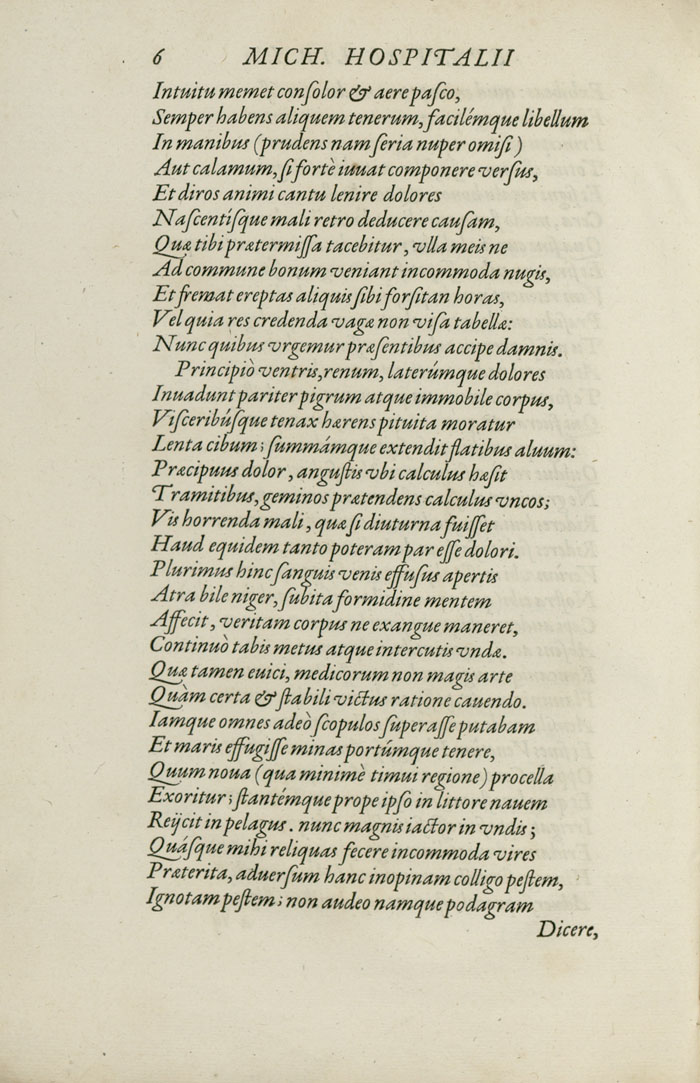 6 MICH. HOSPITALII
Intuitu memet conſolor & aere paſco,
Semper habens aliquem tenerum, facilémque libellum
In manibus (prudens nam ſeria nuper omiſi)
Aut calamum, ſi fortè iuuat componere verſus,
Et diros animi cantu lenire dolores
Naſcentíſque mali retro deducere cauſam,
Quæ tibi prætermiſſa tacebitur, vlla meis ne
Ad commune bonum veniant incommoda nugis,
Et fremat ereptas aliquis ſibi forſitan horas,
Vel quia res credenda vagæ non viſa tabellæ:
Nunc quibus vrgemur præſentibus accipe damnis.
Principiò ventris, renum, laterúmque dolores
Inuadunt pariter pigrum atque immobile corpus,
Viſceribúſque tenax hærens pituita moratur
Lenta cibum; ſummámque extendit flatibus aluum:
Præcipuus dolor, anguſtis vbi calculus hæſit
Tramitibus, geminos prætendens calculus vncos;
Vis horrenda mali, quæ ſi diuturna fuiſſet
Haud equidem tanto poteram par eſſe dolori.
Plurimus hinc ſanguis venis effuſus apertis
Atra bile niger, ſubita formidine mentem
Affecit, veritam corpus ne exangue maneret,
Continuò tabis metus atque intercutis vndæ.
Quæ tamen euici, medicorum non magis arte
Quàm certa & ſtabili victus ratione cauendo.
Iamque omnes adeò ſcopulos ſuperaſſe putabam
Et maris effugiſſe minas portúmque tenere,
Quum noua (qua minimè timui regione) procella
Exoritur; ſtantémque prope ipſo in littore nauem
Reijcit in pelagus. nunc magnis iactor in vndis;
Quáſque mihi reliquas fecere incommoda vires
Præterita, aduerſum hanc inopinam colligo peſtem,
Ignotam peſtem; non audeo namque podagram
Dicere,